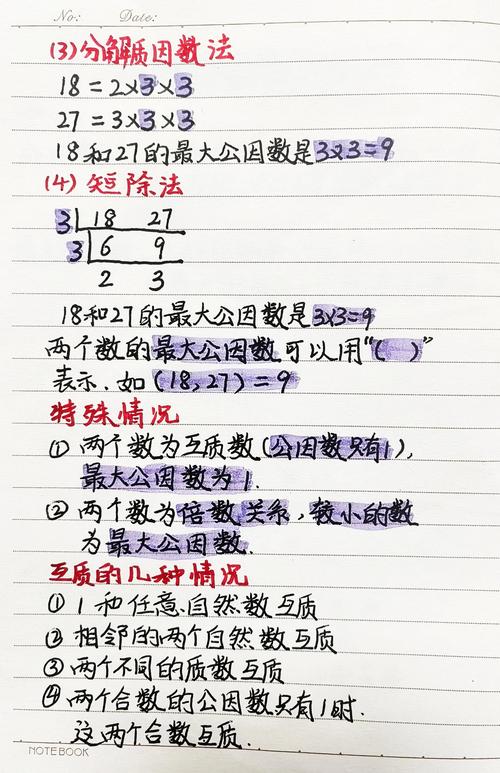 No: Date:
(3)分解质因数法
18=2×3×3
27=3×3×3
18和27的最大公因数是3×3=9
(4)短除法
3 18 27
3 6 9
2 3
18和27的最大公因数是3×3=9
两个数的最大公因数可以用“( )”
表示.如(18,27)=9
特殊情况
① 两个数为互质数(公因数只有1),
最大公因数为1.
② 两个数为倍数关系,较小的数
为最大公因数.
互质的几种情况
① 1和任意自然数互质
② 相邻的两个自然数互质
③ 两个不同的质数互质
④ 两个合数的公因数只有1时.
这两个合数互质.
NOTEBOOK